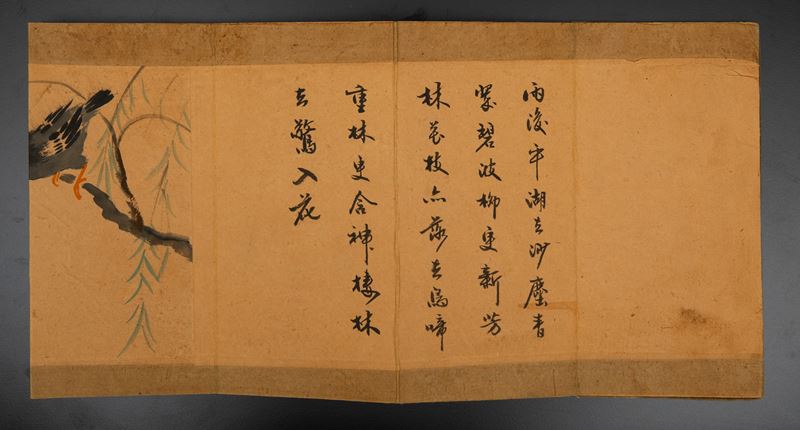 雨後平湖去渺塵青
碧波柳更新芳
林花枝亦落去鳥啼
重林更含神棲林
去驚入花